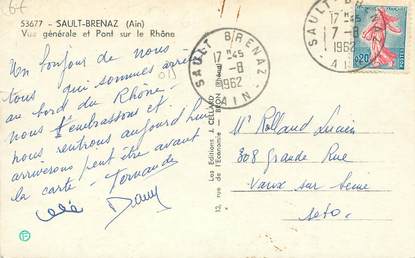 6f
53677 - SAULT-BRENAZ (Ain)
Vue générale et Pont sur le Rhône
Un bonjour de nous
tous qui sommes arrêté
au bord du Rhône
nous t'embrassons et
nous rentrons aujourd'hui
arriverons peut être avant
la carte -
Dany
Les Editions J. CELLARD
12, rue de l'Economie BRON (Rhône)
SAULT-BRENAZ
17 H 45
7-8
1962
AIN
SAULT-BRENAZ
17 H 45
7-8
1962
AIN
0,20
Mr Rolland Lucien
308 Grande Rue
Vaux sur Seine
S et O.